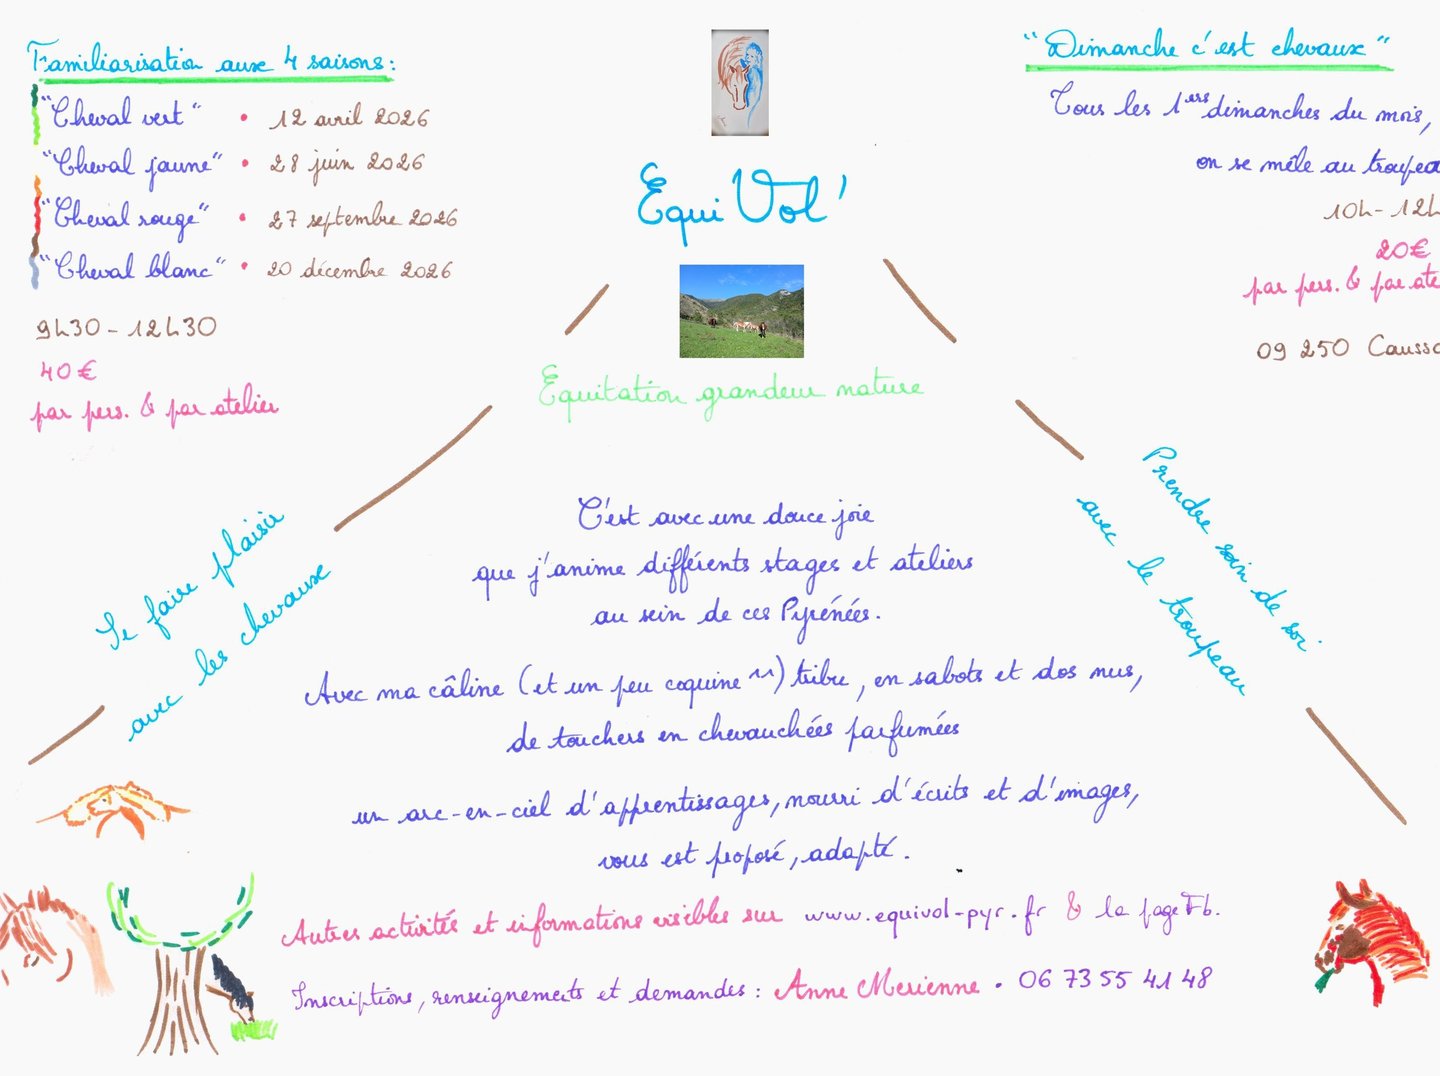 Familiarisation aux 4 saisons :
"Cheval vert" • 12 avril 2026
"Cheval jaune" • 28 juin 2026
"Cheval rouge" • 27 septembre 2026
"Cheval blanc" • 20 décembre 2026
9h30 - 12h30
40€
par pers. & par atelier
Equi Vol'
Equitation grandeur nature
"Dimanche c'est chevaux"
Tous les 1ers dimanches du mois,
on se mêle au
10h - 12h
20€
par pers. & par
09 250
Se faire plaisir
avec les chevaux
Prendre soin de soi
avec le troupeau
C'est avec une douce joie
que j'anime différents stages et ateliers
au sein de ces Pyrénées.
Avec ma câline (et un peu coquine ^^) tribu, en sabots et dos nus,
de touchers en chevauchées parfumées
un arc-en-ciel d'apprentissages, nourri d'écrits et d'images,
vous est proposé, adapté.
Autres activités et informations visibles sur www.equivol-pyr.fr & la page Fb.
Inscriptions, renseignements et demandes : Anne Merienne • 06 73 55 41 48